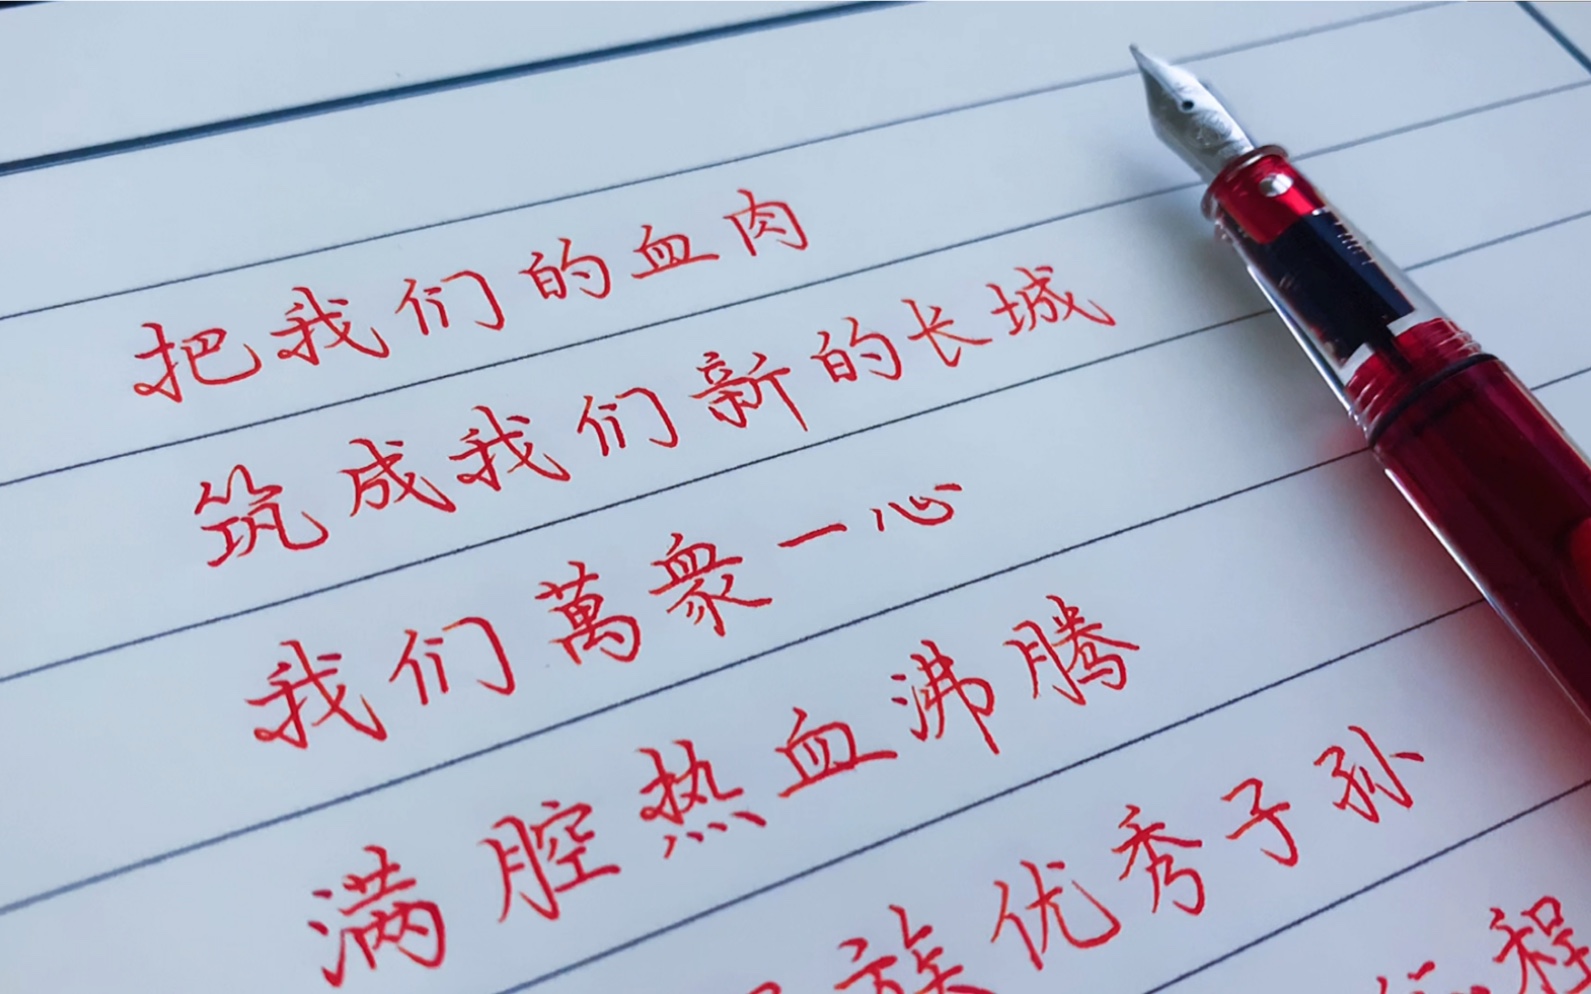 把我们的血肉
筑成我们新的长城
我们萬衆一心
满腔热血沸腾
族优秀子孙
程